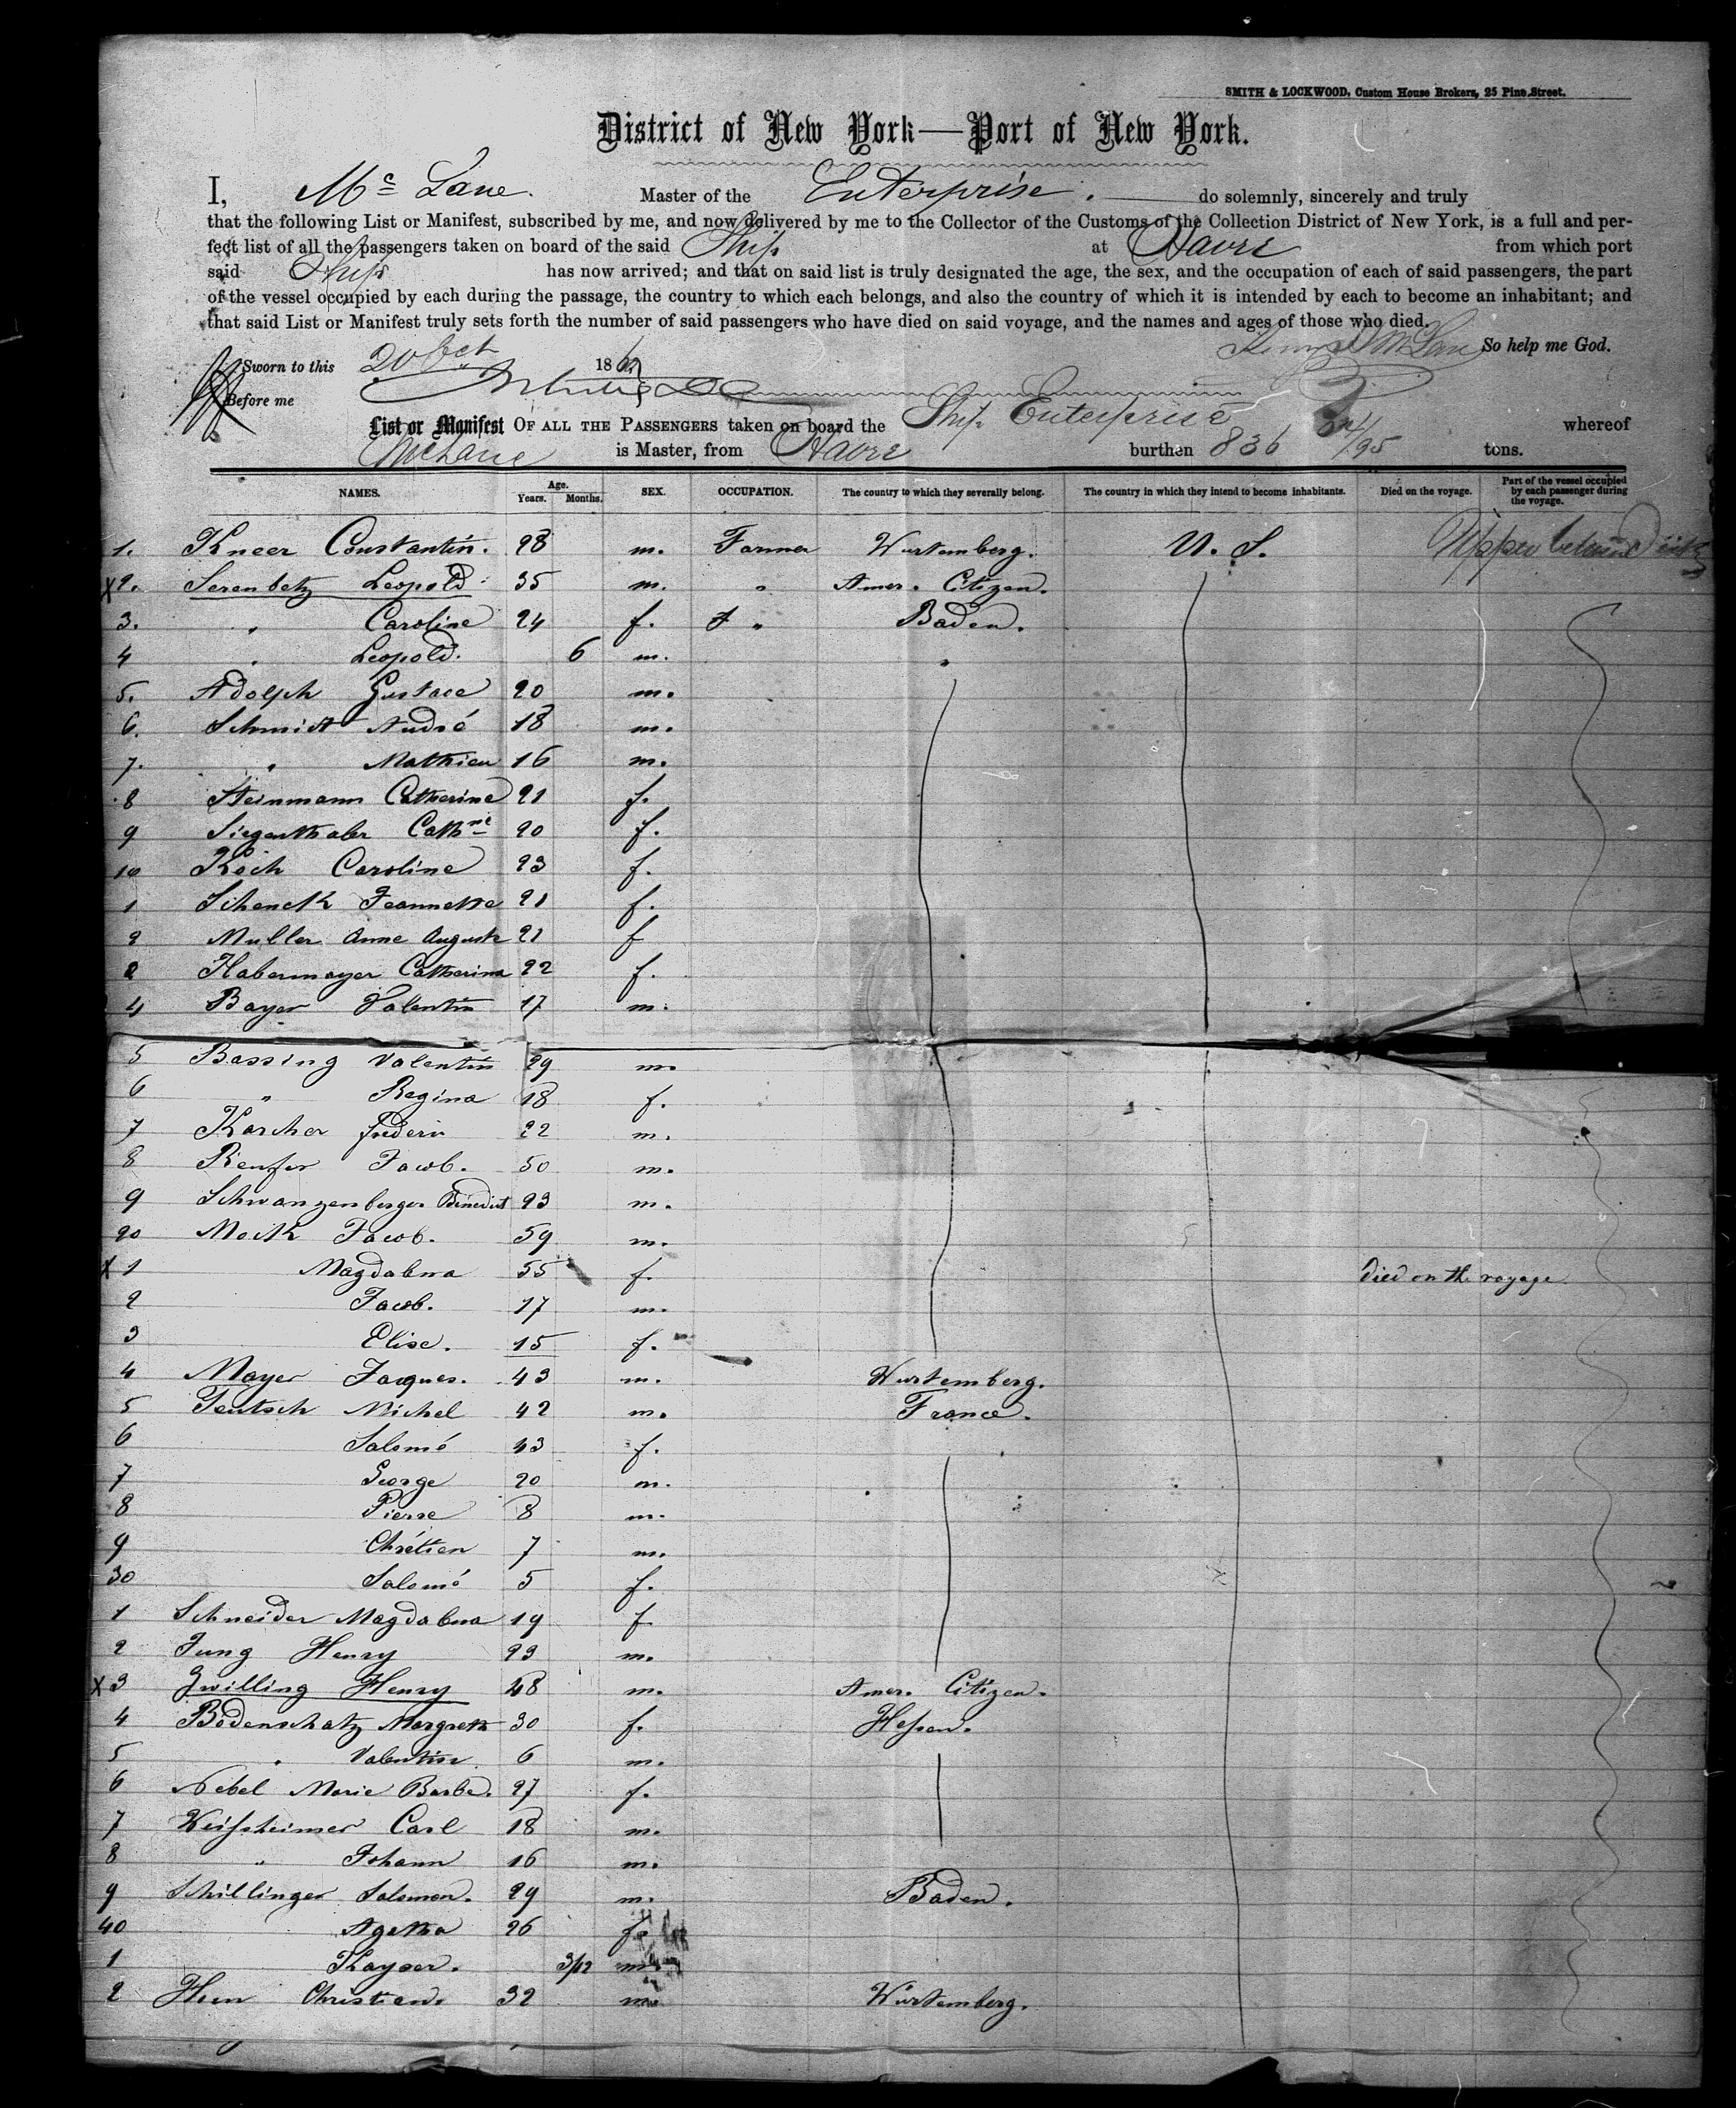 SMITH & LOCKWOOD, Custom House Brokers, 25 Pine Street.
District of New York—Port of New York.
I, Mc Lane. Master of the Enterprise. do solemnly, sincerely and truly
that the following List or Manifest, subscribed by me, and now delivered by me to the Collector of the Customs of the Collection District of New York, is a full and per-
fect list of all the passengers taken on board of the said Ship at Havre from which port
said Ship has now arrived; and that on said list is truly designated the age, the sex, and the occupation of each of said passengers, the part
of the vessel occupied by each during the passage, the country to which each belongs, and also the country of which it is intended by each to become an inhabitant; and
that said List or Manifest truly sets forth the number of said passengers who have died on said voyage, and the names and ages of those who died.
So help me God.
Sworn to this 20 Oct 186
Before me
List or Manifest OF ALL THE PASSENGERS taken on board the Ship Enterprise whereof
McLane is Master, from Havre burthen 836 /95 tons.
NAMES. Age. Years. Months. SEX. OCCUPATION. The country to which they severally belong. The country in which they intend to become inhabitants. Died on the voyage. Part of the vessel occupied by each passenger during the voyage.
1. Kneer Constantin. 28 m. Farmer Wurtemberg. U. S. Upper between Deck
X2. Serenbetz Leopold 35 m. " Amer. Citizen.
3. " Caroline 24 f. " Baden.
4 " Leopold. 6 m. "
5. Adolph Gustave 20 m.
6. Schmidt André 18 m.
7. " Mathieu 16 m.
8 Steinmann Catherine 21 f.
9 Siegenthaler Cathne 20 f.
10 Koch Caroline 23 f.
1 Schenck Jeannette 21 f.
2 Muller Anne Auguste 21 f
2 Habermayer Catherina 22 f.
4 Bayer Valentin 17 m.
5 Bassing Valentin 29 m.
6 " Regina 18 f.
7 Karcher frederic 22 m.
8 Renfer Jacob. 50 m.
9 Schwanzenberger Benedict 23 m.
20 Meik Jacob. 59 m.
X 1 Magdalena 55 f. Died on the voyage.
2 Jacob. 17 m.
3 Elise. 15 f.
4 Mayer Jacques. 43 m. Wurtemberg.
5 Teutsch Michel 42 m. France.
6 Salomé 43 f.
7 George 20 m.
8 Pierre 8 m.
9 Chrétien 7 m.
30 Salomé 5 f.
1 Schneider Magdalena 19 f
2 Jung Henry 23 m.
X 3 Zwilling Henry 48 m. Amer. Citizen.
4 Bodenschatz Margreth 30 f. Hessen.
5 " Valentin 6 m.
6 Nebel Marie Barbe. 27 f.
7 Weissheimer Carl 18 m.
8 " Johann 16 m.
9 Schillinger Salomon. 29 m. Baden.
40 Agatha 26 f.
1 Kayser. 3/12 m.
2 Hun Christian. 32 m. Wurtemberg.